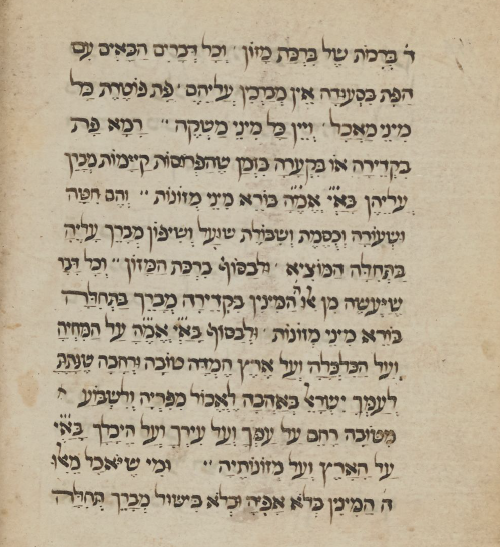 ד׳ ברכות של ברכת מזון · וכל דברים הבאים עם
הפת בסעודה אין מברכין עליהם · פת פוטרת כל
מיני מאכל · ויין כל מיני משקה ·· פת
בקדירה או בקערה בזמן שהפרוסות קיימות מברך
עליהן בא״י אמ״ה בורא מיני מזונות ·· והם חטה
ושעורה וכסמת ושבולת שועל ושיפון מברך עליה
בתחלה המוציא · ולבסוף ברכת המזון ·· וכל דגן
שיעשה מן המינין בקדירה מברך בתחלה
בורא מיני מזונות · ולבסוף בא״י אמ״ה על המחיה
ועל הכלכלה ועל ארץ חמדה טובה ורחבה שנתת
לעמך ישראל באהבה לאכול מפריה ולשבוע
מטובה רחם על עמך ועל עירך ועל היכלך בא״י
על הארץ ועל מזונותיה ·· ומי שיאכל מאו
ה המינין בלא אפיה ובלא בישול מברך תחלה